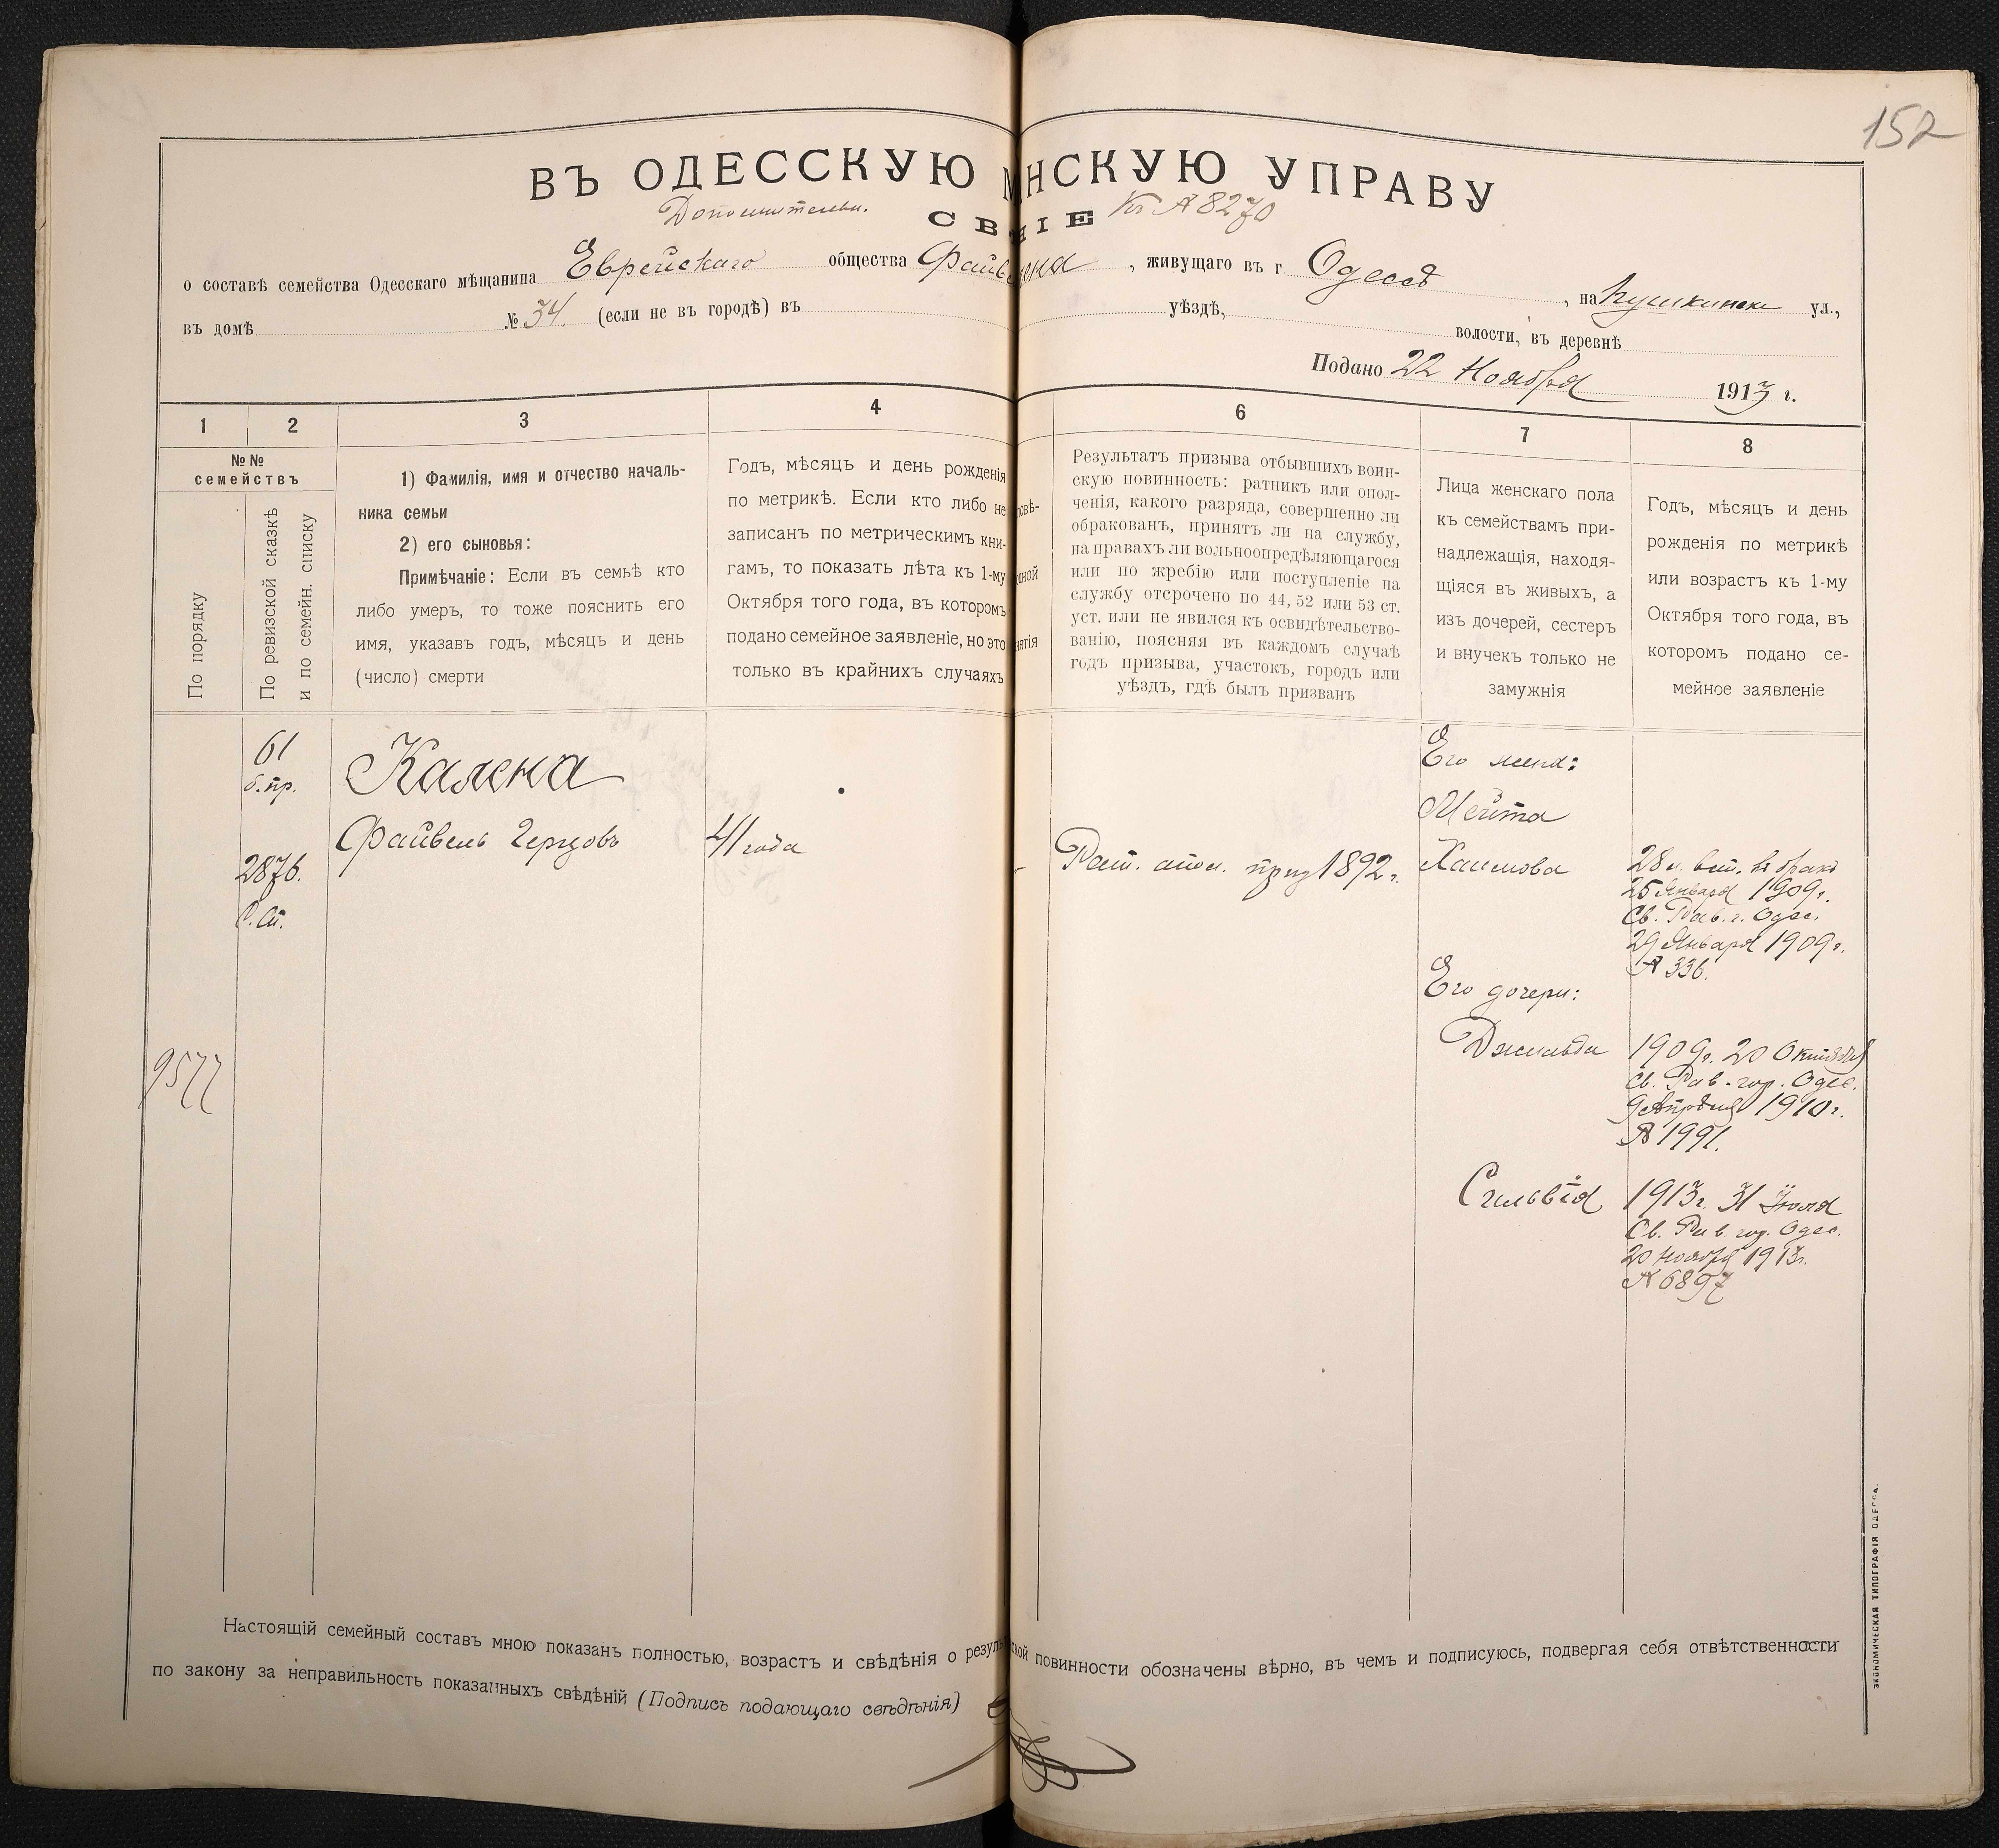 152
ВЪ ОДЕССКУЮ НСКУЮ УПРАВУ
Дополнительн. СВ НІЕ Къ № 8270
о составѣ семейства Одесскаго мѣщанина Еврейскаго общества Файв лена , живущаго въ г Одессѣ , на Пушкинск ул.,
въ домѣ № 34. (если не въ городѣ) въ уѣздѣ, волости, въ деревнѣ
Подано 22 Ноября 1913 г.
1 2 3 4 6 7 8
№ №
семействъ
По порядку
По ревизской сказкѣ
и по семейн. списку
1) Фамилія, имя и отчество началь-
ника семьи
2) его сыновья:
Примѣчаніе: Если въ семьѣ кто
либо умеръ, то тоже пояснить его
имя, указавъ годъ, мѣсяцъ и день
(число) смерти
Годъ, мѣсяцъ и день рожденія
по метрикѣ. Если кто либо не
записанъ по метрическимъ кни-
гамъ, то показать лѣта къ 1-му
Октября того года, въ которомъ
подано семейное заявленіе, но это
только въ крайнихъ случаяхъ
Результатъ призыва отбывшихъ воин-
скую повинность: ратникъ или опол-
ченія, какого разряда, совершенно ли
обракованъ, принятъ ли на службу,
на правахъ ли вольноопредѣляющагося
или по жребію или поступленіе на
службу отсрочено по 44, 52 или 53 ст.
уст. или не явился къ освидѣтельство-
ванію, поясняя въ каждомъ случаѣ
годъ призыва, участокъ, городъ или
уѣздъ, гдѣ былъ призванъ
Лица женскаго пола
къ семействамъ при-
надлежащія, находя-
щіяся въ живыхъ, а
изъ дочерей, сестеръ
и внучекъ только не
замужнія
Годъ, мѣсяцъ и день
рожденія по метрикѣ
или возрастъ къ 1-му
Октября того года, въ
которомъ подано се-
мейное заявленіе
61
б. пр.
2876.
С. Сп.
9577
Калена
Файвель Герцовъ
41 года
Рат. опол. приз 1892 г.
Его жена:
Мейта
Хаимова
28 л. вст. въ бракъ
25 Января 1909 г.
Св. Рав. г. Одес.
29 Января 1909 г.
№ 336.
Его дочери:
Джильда
1909 г. 20 Октября
Св. Рав. гор. Одес.
9 Апрѣля 1910 г.
№ 1991.
Сильвія
1913 г. 31 Іюля
Св. Рав. гор. Одес.
20 Ноября 1913 г.
№ 6897
Настоящій семейный составъ мною показанъ полностью, возрастъ и свѣдѣнія о резуль ской повинности обозначены вѣрно, въ чемъ и подписуюсь, подвергая себя отвѣтственности
по закону за неправильность показанныхъ свѣдѣній (Подпись подающаго свѣдѣнія)
ЭКОНОМИЧЕСКАЯ ТИПОГРАФІЯ ОДЕССА.